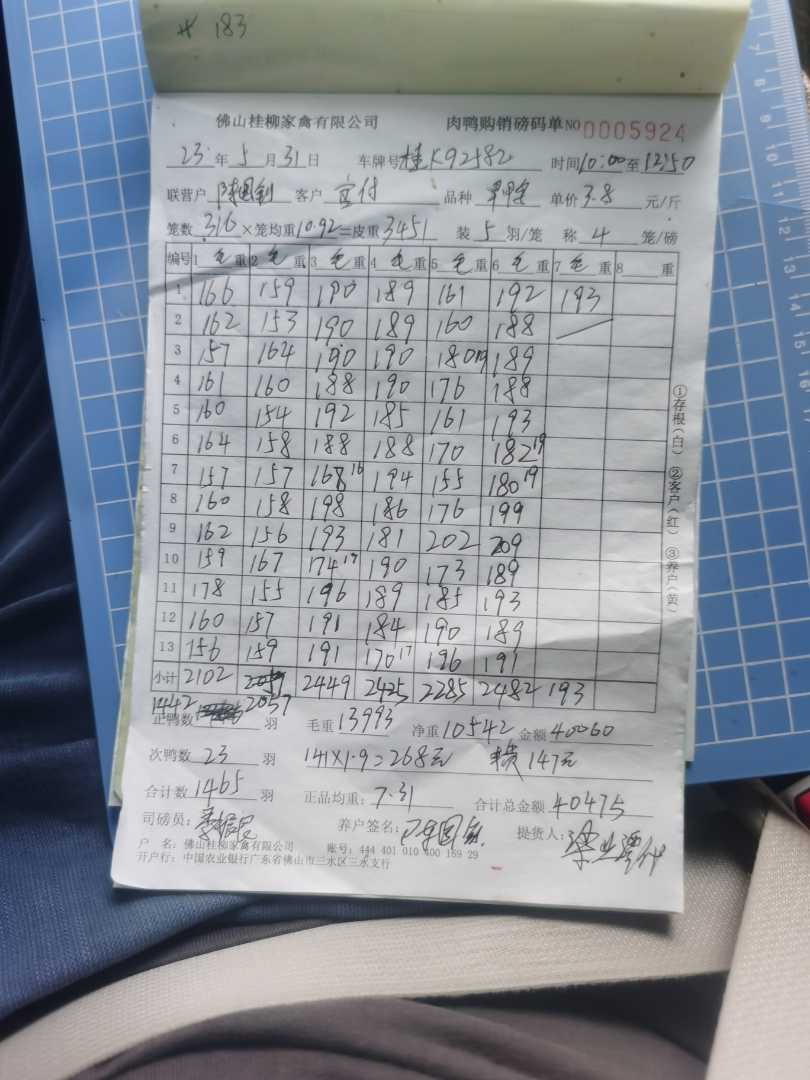 # 183
佛山桂柳家禽有限公司 肉鸭购销磅码单 NO 0005924
23 年 5 月 31 日 车牌号 桂K92582 时间 10:00 至 12:50
联营户 陈国钊 客户 品种 单价 3.8 元/斤
笼数 316 ×笼均重 10.92 =皮重 3451 装 5 羽/笼 称 4 笼/磅
编号 1 毛 重 2 毛 重 3 毛 重 4 毛 重 5 毛 重 6 毛 重 7 毛 重 8 重
1 166 159 190 189 161 192 193
2 162 153 190 189 160 188
3 157 164 190 190 180 19 189
4 161 160 188 190 176 188
5 160 154 192 185 161 193
6 164 158 188 188 170 182 19
7 157 157 168 16 194 155 180 19
8 160 158 198 186 176 199
9 162 156 193 181 202 209
10 159 167 174 17 190 173 189
11 178 155 196 189 185 193
12 160 157 191 184 190 189
13 156 159 191 170 17 196 191
小计 2102 2449 2425 2285 2482 193
1442 2057
正鸭数 羽 毛重 13993 净重 10542 金额 40060
次鸭数 23 羽 141×1.9=268元 147元
合计数 1465 羽 正品均重: 7.31 合计总金额 40475
司磅员: 养户签名: 提货人:
户 名: 佛山桂柳家禽有限公司 账号: 444 401 010 400 169 29
开户行: 中国农业银行广东省佛山市三水区三水支行
①存根(白) ②客户(红) ③养户(黄)
7 8 9 10 11 12 13 14 15 16